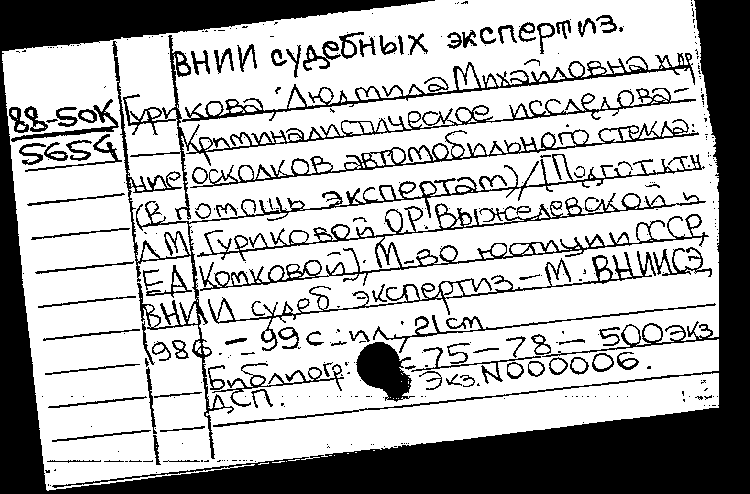 ВНИИ судебных экспертиз.
88-50К
5654
Гурикова, Людмила Михайловна и др
Криминалистическое исследова-
ние осколков автомобильного стекла:
(В помощь экспертам) / [Подгот. к.т.н.
Л.М. Гуриковой, О.Р. Выжелевской и
Е.А. Котковой]; М-во юстиции СССР,
ВНИИ судеб. экспертиз. - М.: ВНИИСЭ,
1986. - 99 с.: ил.; 21 см
Библиогр.: с. 75-78. - 500 экз
ДСП. Экз. N000006.